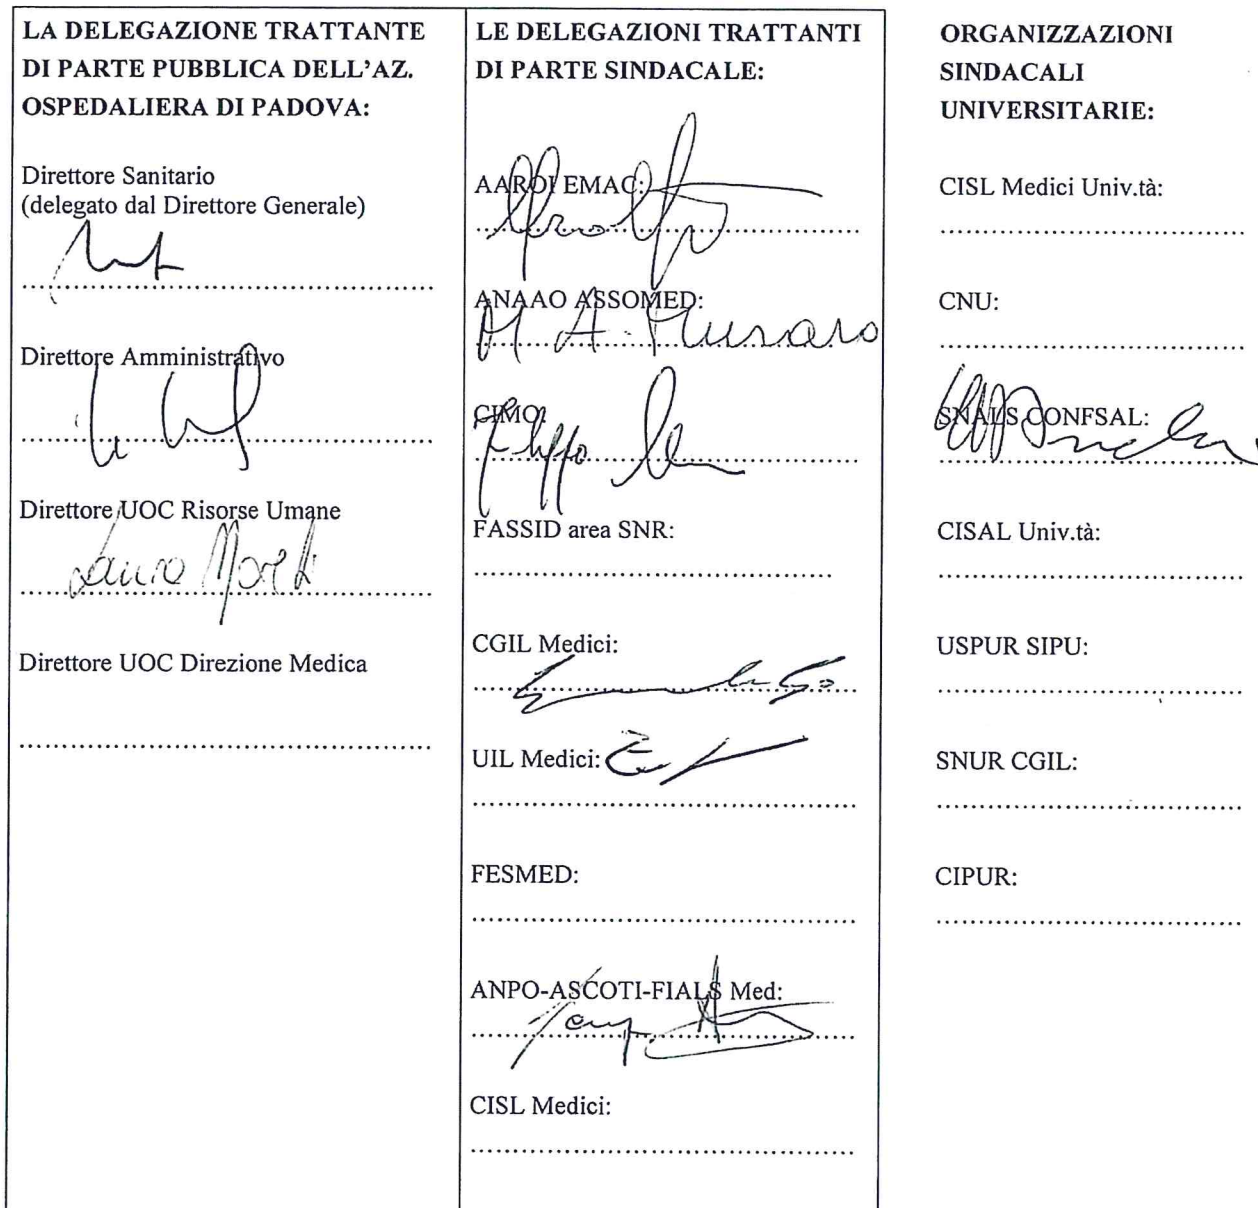 LA DELEGAZIONE TRATTANTE
DI PARTE PUBBLICA DELL'AZ.
OSPEDALIERA DI PADOVA:
Direttore Sanitario
(delegato dal Direttore Generale)
Direttore Amministrativo
Direttore UOC Risorse Umane
Laura
Direttore UOC Direzione Medica
LE DELEGAZIONI TRATTANTI
DI PARTE SINDACALE:
AAROI EMAC:
ANAAO ASSOMED:
M A.
CIMO:
FASSID area SNR:
CGIL Medici:
UIL Medici:
FESMED:
ANPO-ASCOTI-FIALS Med:
CISL Medici:
ORGANIZZAZIONI
SINDACALI
UNIVERSITARIE:
CISL Medici Univ.tà:
CNU:
SNALS CONFSAL:
CISAL Univ.tà:
USPUR SIPU:
SNUR CGIL:
CIPUR: